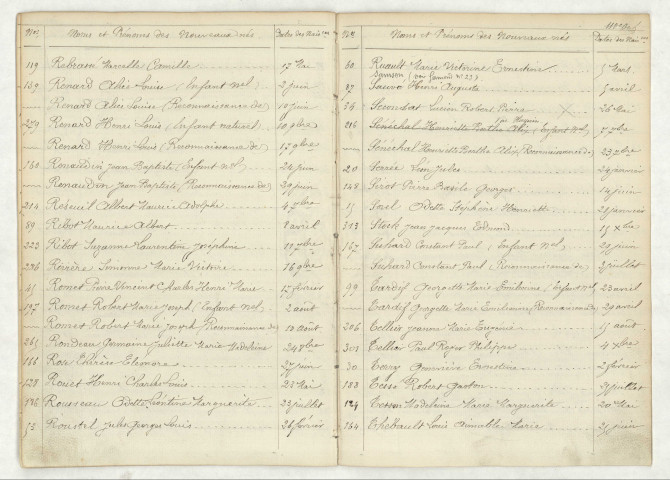 Nos Noms et Prénoms des Nouveaux nés Dates des Naissces
119 Rebram Marcelle Camille 17 Mai
159 Renard Alice Louise (Enfant nel) 2 juin
— Renard Alice Louise (Reconnaissance de) 10 juin
259 Renard Henri Louis (Enfant naturel) 10 9bre
— Renard Henri Louis (Reconnaissance de)
160 Renaudin Jean Baptiste (Enfant nel) 24 juin
— Renaudin Jean Baptiste, (Reconnaissance de) 29 juin
214 Albert Maurice Adolphe 4 7bre
89 Ribot Maurice Albert 8 avril
223 Ribot Suzanne Laurentine Joséphine
236 Simonne Marie Victoire 16 9bre
45 Romet Pierre Vincent Charles Henri Marie 17 février
197 Romet Robert Marie Joseph (Enfant nel) 2 août
— Romet Robert Marie Joseph (Reconnaissance de) 10 Août
261 Rondeau Germaine Juliette Marie Madeleine
166 Rose Thérèse Eléonore juin
128 Rouet Henri Charles Louis 28 Mai
196 Rousseau Odette Léontine Marguerite 23 juillet
53 Jules Georges Louis 26 février
Nos Noms et Prénoms des Nouveaux nés Dates des Naisces
60 Ruault Marie Victorine Ernestine 5 Mars
Samson (voir Gamard No 23)
87 Sauvé Henri Auguste 5 avril
Lucien Robert Pierre 26 Mai
216 Sénéchal Henriette Berthe Alix (Enfant nel) 7bre
— Sénéchal Henriette Berthe Alix, (Reconnaissance de) 23 7bre
20 Serrée Léon Jules 24 janvier
148 Pierre Basile Georges 14 juin
15 Sorel Odette Stéphanie Henriette janvier
313 Stock Jean Jacques Edmond 15 Xbre
167 Suhard Constant Paul (Enfant nel) 28 juin
— Suhard Constant Paul (Reconnaissance de) juillet
99 Tardif Georgette Marie Emilienne (Enfant nel) 23 avril
— Tardif Georgette Marie Emilienne (Reconnaissance de) 29 avril
206 Tellier Jeanne Marie Eugénie 15 août
301 Tellier Paul Roger Philippe 4 Xbre
30 Terry Geneviève Ernestine 2 février
183 Tesse Robert Gaston juillet
124 Tesson Madeleine Marie Marguerite 20 Mai
164 Thébault Louis Aimable Marie juin